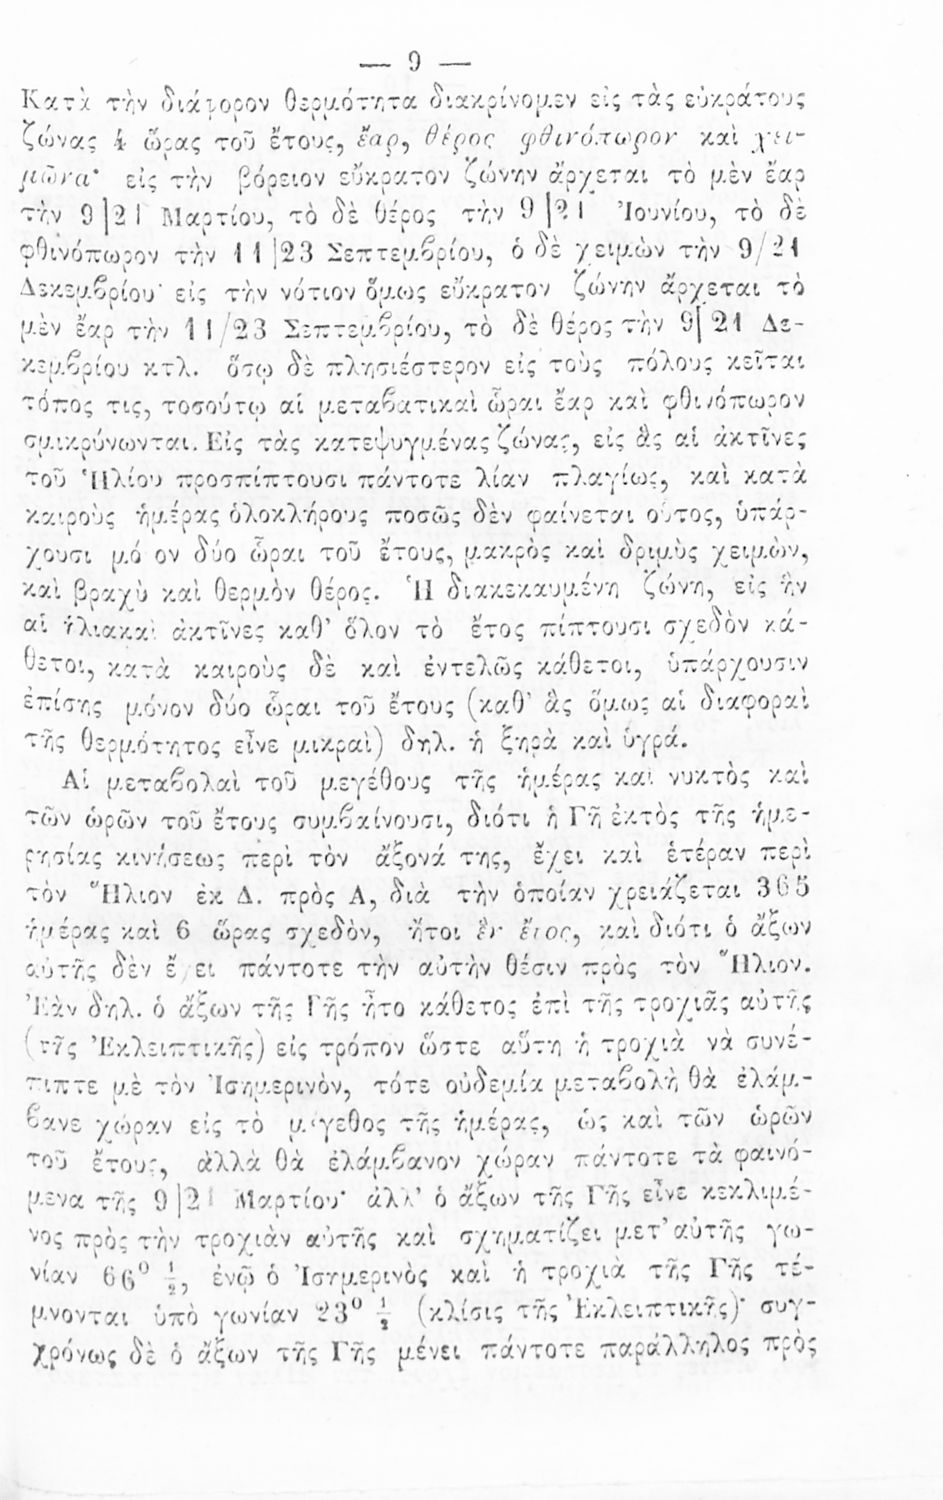 — 9 —
Κατὰ τὴν διάφορον θερμότητα διακρίνομεν εἰς τὰς εὐκράτους
ζώνας 4 ὥρας τοῦ ἔτους, ἔαρ, θέρος φθινόπωρον καὶ χει-
μῶνα· εἰς τὴν βόρειον εὔκρατον ζώνην ἄρχεται τὸ μὲν ἔαρ
τὴν 9|21 Μαρτίου, τὸ δὲ θέρος τὴν 9|21 Ἰουνίου, τὸ δὲ
φθινόπωρον τὴν 11|23 Σεπτεμβρίου, ὁ δὲ χειμὼν τὴν 9/21
Δεκεμβρίου· εἰς τὴν νότιον ὅμως εὔκρατον ζώνην ἄρχεται τὸ
μὲν ἔαρ τὴν 11/23 Σεπτεμβρίου, τὸ δὲ θέρος τὴν 9|21 Δε-
κεμβρίου κτλ. ὅσῳ δὲ πλησιέστερον εἰς τοὺς πόλους κεῖται
τόπος τις, τοσούτῳ αἱ μεταβατικαὶ ὧραι ἔαρ καὶ φθινόπωρον
σμικρύνωνται. Εἰς τὰς κατεψυγμένας ζώνας, εἰς ἃς αἱ ἀκτῖνες
τοῦ Ἡλίου προσπίπτουσι πάντοτε λίαν πλαγίως, καὶ κατὰ
καιροὺς ἡμέρας ὁλοκλήρους ποσῶς δὲν φαίνεται οὗτος, ὑπάρ-
χουσι μό ον δύο ὧραι τοῦ ἔτους, μακρὸς καὶ δριμὺς χειμὼν,
καὶ βραχὺ καὶ θερμὸν θέρος. Ἡ διακεκαυμένη ζώνη, εἰς ἣν
αἱ ἡλιακαὶ ἀκτῖνες καθ' ὅλον τὸ ἔτος πίπτουσι σχεδὸν κά-
θετοι, κατὰ καιροὺς δὲ καὶ ἐντελῶς κάθετοι, ὑπάρχουσιν
ἐπίσης μόνον δύο ὧραι τοῦ ἔτους (καθ' ἃς ὅμως αἱ διαφοραὶ
τῆς θερμότητος εἶνε μικραὶ) δηλ. ἡ ξηρὰ καὶ ὑγρά.
Αἱ μεταβολαὶ τοῦ μεγέθους τῆς ἡμέρας καὶ νυκτὸς καὶ
τῶν ὡρῶν τοῦ ἔτους συμβαίνουσι, διότι ἡ Γῆ ἐκτὸς τῆς ἡμε-
ρησίας κινήσεως περὶ τὸν ἄξονά της, ἔχει καὶ ἑτέραν περὶ
τὸν Ἥλιον ἐκ Δ. πρὸς Α, διὰ τὴν ὁποίαν χρειάζεται 365
ἡμέρας καὶ 6 ὥρας σχεδὸν, ἤτοι ἓν ἔτος, καὶ διότι ὁ ἄξων
αὐτῆς δὲν ἔχει πάντοτε τὴν αὐτὴν θέσιν πρὸς τὸν Ἥλιον.
Ἐὰν δηλ. ὁ ἄξων τῆς Γῆς ἦτο κάθετος ἐπὶ τῆς τροχιᾶς αὐτῆς
(τῆς Ἐκλειπτικῆς) εἰς τρόπον ὥστε αὕτη ἡ τροχιὰ νὰ συνέ-
πιπτε μὲ τὸν Ἰσημερινὸν, τότε οὐδεμία μεταβολὴ θὰ ἐλάμ-
βανε χώραν εἰς τὸ μέγεθος τῆς ἡμέρας, ὡς καὶ τῶν ὡρῶν
τοῦ ἔτους, ἀλλὰ θὰ ἐλάμβανον χώραν πάντοτε τὰ φαινό-
μενα τῆς 9|21 Μαρτίου· ἀλλ' ὁ ἄξων τῆς Γῆς εἶνε κεκλιμέ-
νος πρὸς τὴν τροχιὰν αὐτῆς καὶ σχηματίζει μετ' αὐτῆς γω-
νίαν 66° ½, ἐνῷ ὁ Ἰσημερινὸς καὶ ἡ τροχιὰ τῆς Γῆς τέ-
μνονται ὑπὸ γωνίαν 23° ½ (κλίσις τῆς Ἐκλειπτικῆς)· συγ-
χρόνως δὲ ὁ ἄξων τῆς Γῆς μένει πάντοτε παράλληλος πρὸς